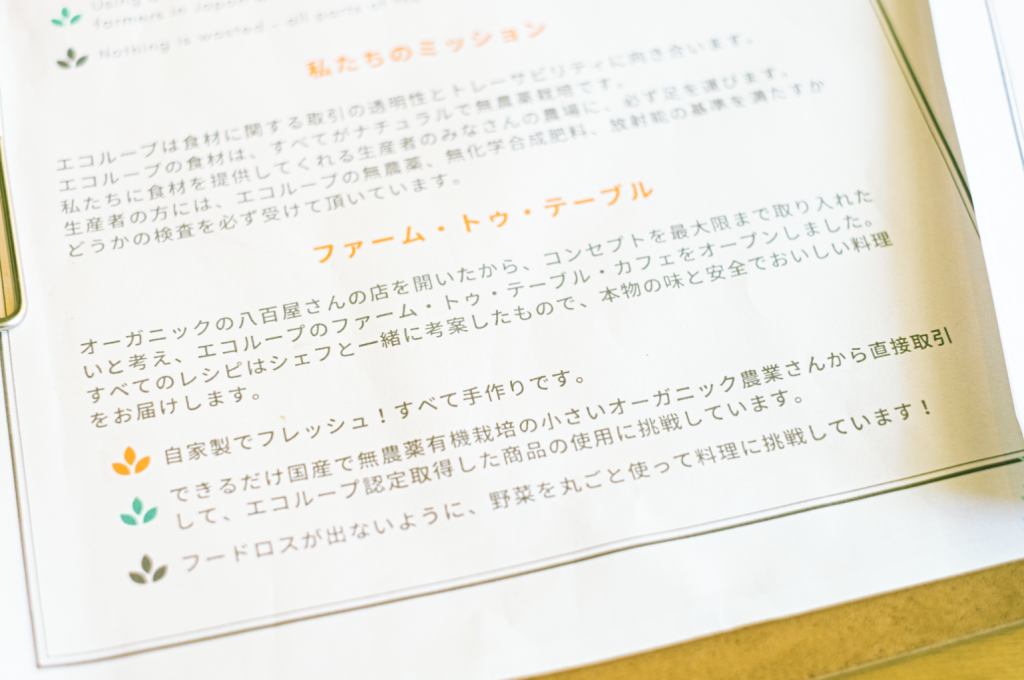 farmers in Japan
Nothing is wasted – all parts of the
私たちのミッション
エコループは食材に関する取引の透明性とトレーサビリティに向き合います。
エコループの食材は、すべてがナチュラルで無農薬栽培です。
私たちに食材を提供してくれる生産者のみなさんの農場に、必ず足を運びます。
生産者の方には、エコループの無農薬、無化学合成肥料、放射能の基準を満たすか
どうかの検査を必ず受けて頂いています。
ファーム・トゥ・テーブル
オーガニックの八百屋さんの店を開いたから、コンセプトを最大限まで取り入れた
いと考え、エコループのファーム・トゥ・テーブル・カフェをオープンしました。
すべてのレシピはシェフと一緒に考案したもので、本物の味と安全でおいしい料理
をお届けします。
自家製でフレッシュ！すべて手作りです。
できるだけ国産で無農薬有機栽培の小さいオーガニック農業さんから直接取引
して、エコループ認定取得した商品の使用に挑戦しています。
フードロスが出ないように、野菜を丸ごと使って料理に挑戦しています！